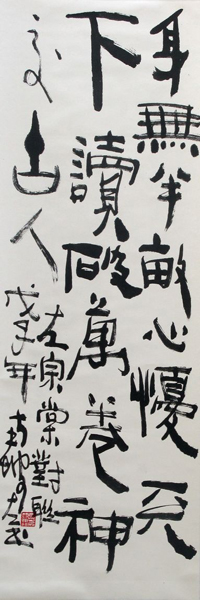 身無半畝心憂天
下讀破萬卷神
交古人
左宗棠對聯
戊子年